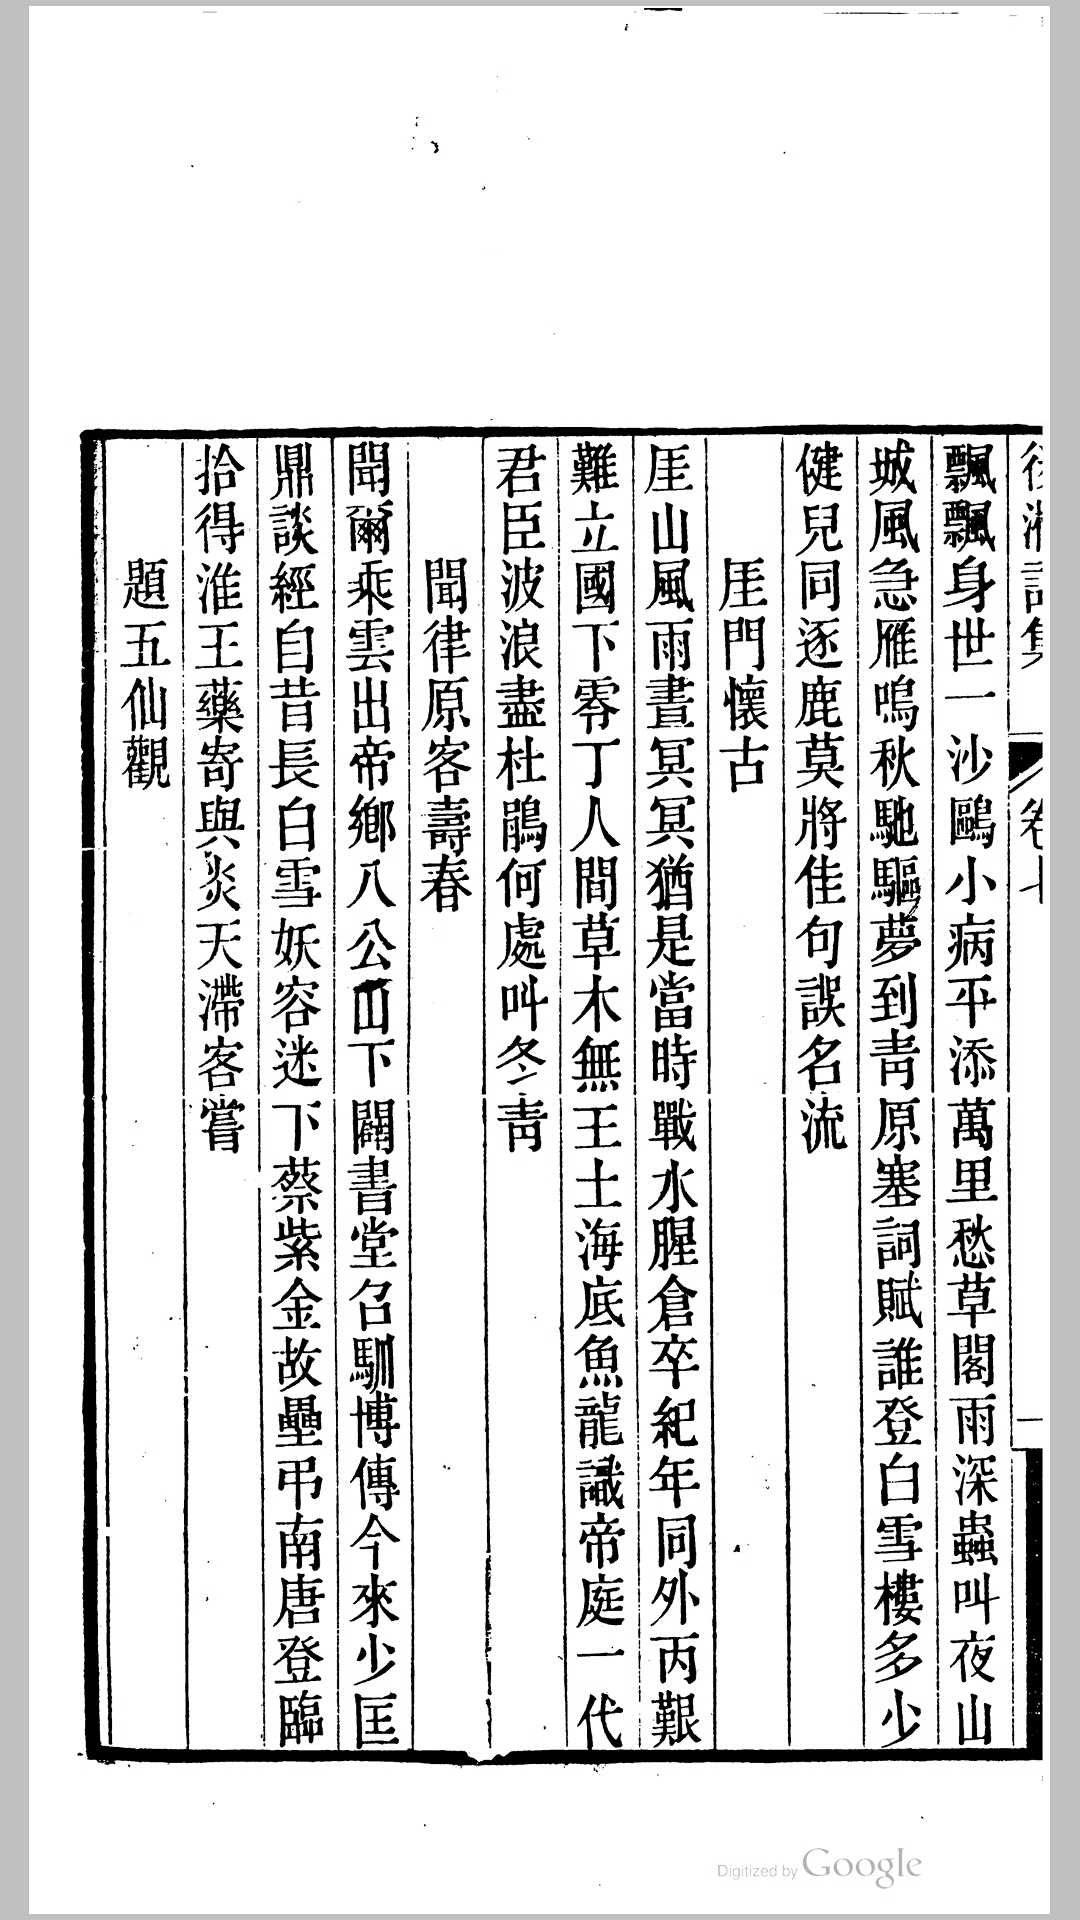 飄飄身世一沙鷗小病平添萬里愁草閣雨深蟲叫夜山
城風急雁鳴秋馳驅夢到靑原塞詞賦誰登白雪樓多少
健兒同逐鹿莫將佳句誤名流
厓門懷古
厓山風雨晝冥冥猶是當時戰水腥倉卒紀年同外丙艱
難立國下零丁人間草木無王土海底魚龍識帝庭一代
君臣波浪盡杜鵑何處叫冬靑
聞律原客壽春
聞爾乘雲出帝鄉八公山下闢書堂召馴博傳今來少匡
鼎談經自昔長白雪妖容迷下蔡紫金故壘弔南唐登臨
拾得淮王藥寄與炎天滯客嘗
題五仙觀
Digitized by Google